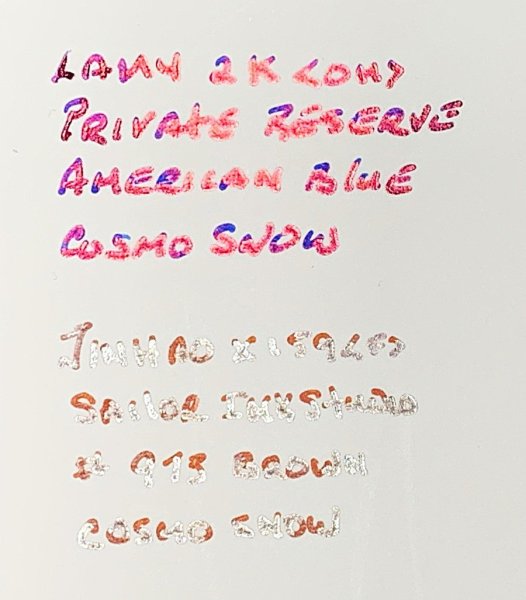 LAMY 2K <OM>
PRIVATE RESERVE
AMERICAN BLUE
COSMO SNOW
JINHAO X159
SAILOR INK STUDIO
# 973 BROWN
COSMO SNOW